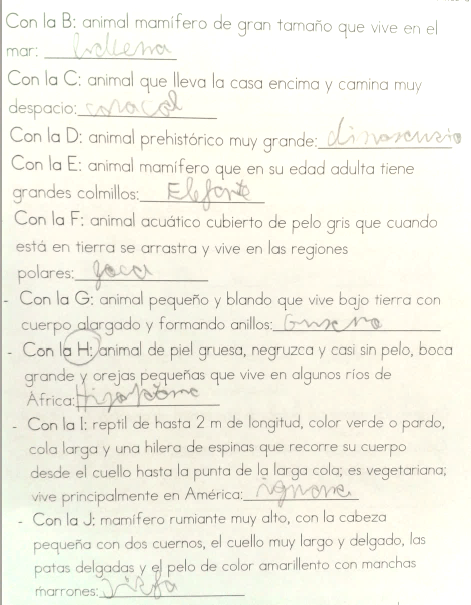 Con la B: animal mamífero de gran tamaño que vive en el
mar: ballena
Con la C: animal que lleva la casa encima y camina muy
despacio: caracol
Con la D: animal prehistórico muy grande:
Con la E: animal mamífero que en su edad adulta tiene
grandes colmillos: Elefante
Con la F: animal acuático cubierto de pelo gris que cuando
está en tierra se arrastra y vive en las regiones
polares: foca
- Con la G: animal pequeño y blando que vive bajo tierra con
cuerpo alargado y formando anillos: Gusano
- Con la H: animal de piel gruesa, negruzca y casi sin pelo, boca
grande y orejas pequeñas que vive en algunos ríos de
África:
- Con la I: reptil de hasta 2 m de longitud, color verde o pardo,
cola larga y una hilera de espinas que recorre su cuerpo
desde el cuello hasta la punta de la larga cola; es vegetariana;
vive principalmente en América:
- Con la J: mamífero rumiante muy alto, con la cabeza
pequeña con dos cuernos, el cuello muy largo y delgado, las
patas delgadas y el pelo de color amarillento con manchas
marrones: